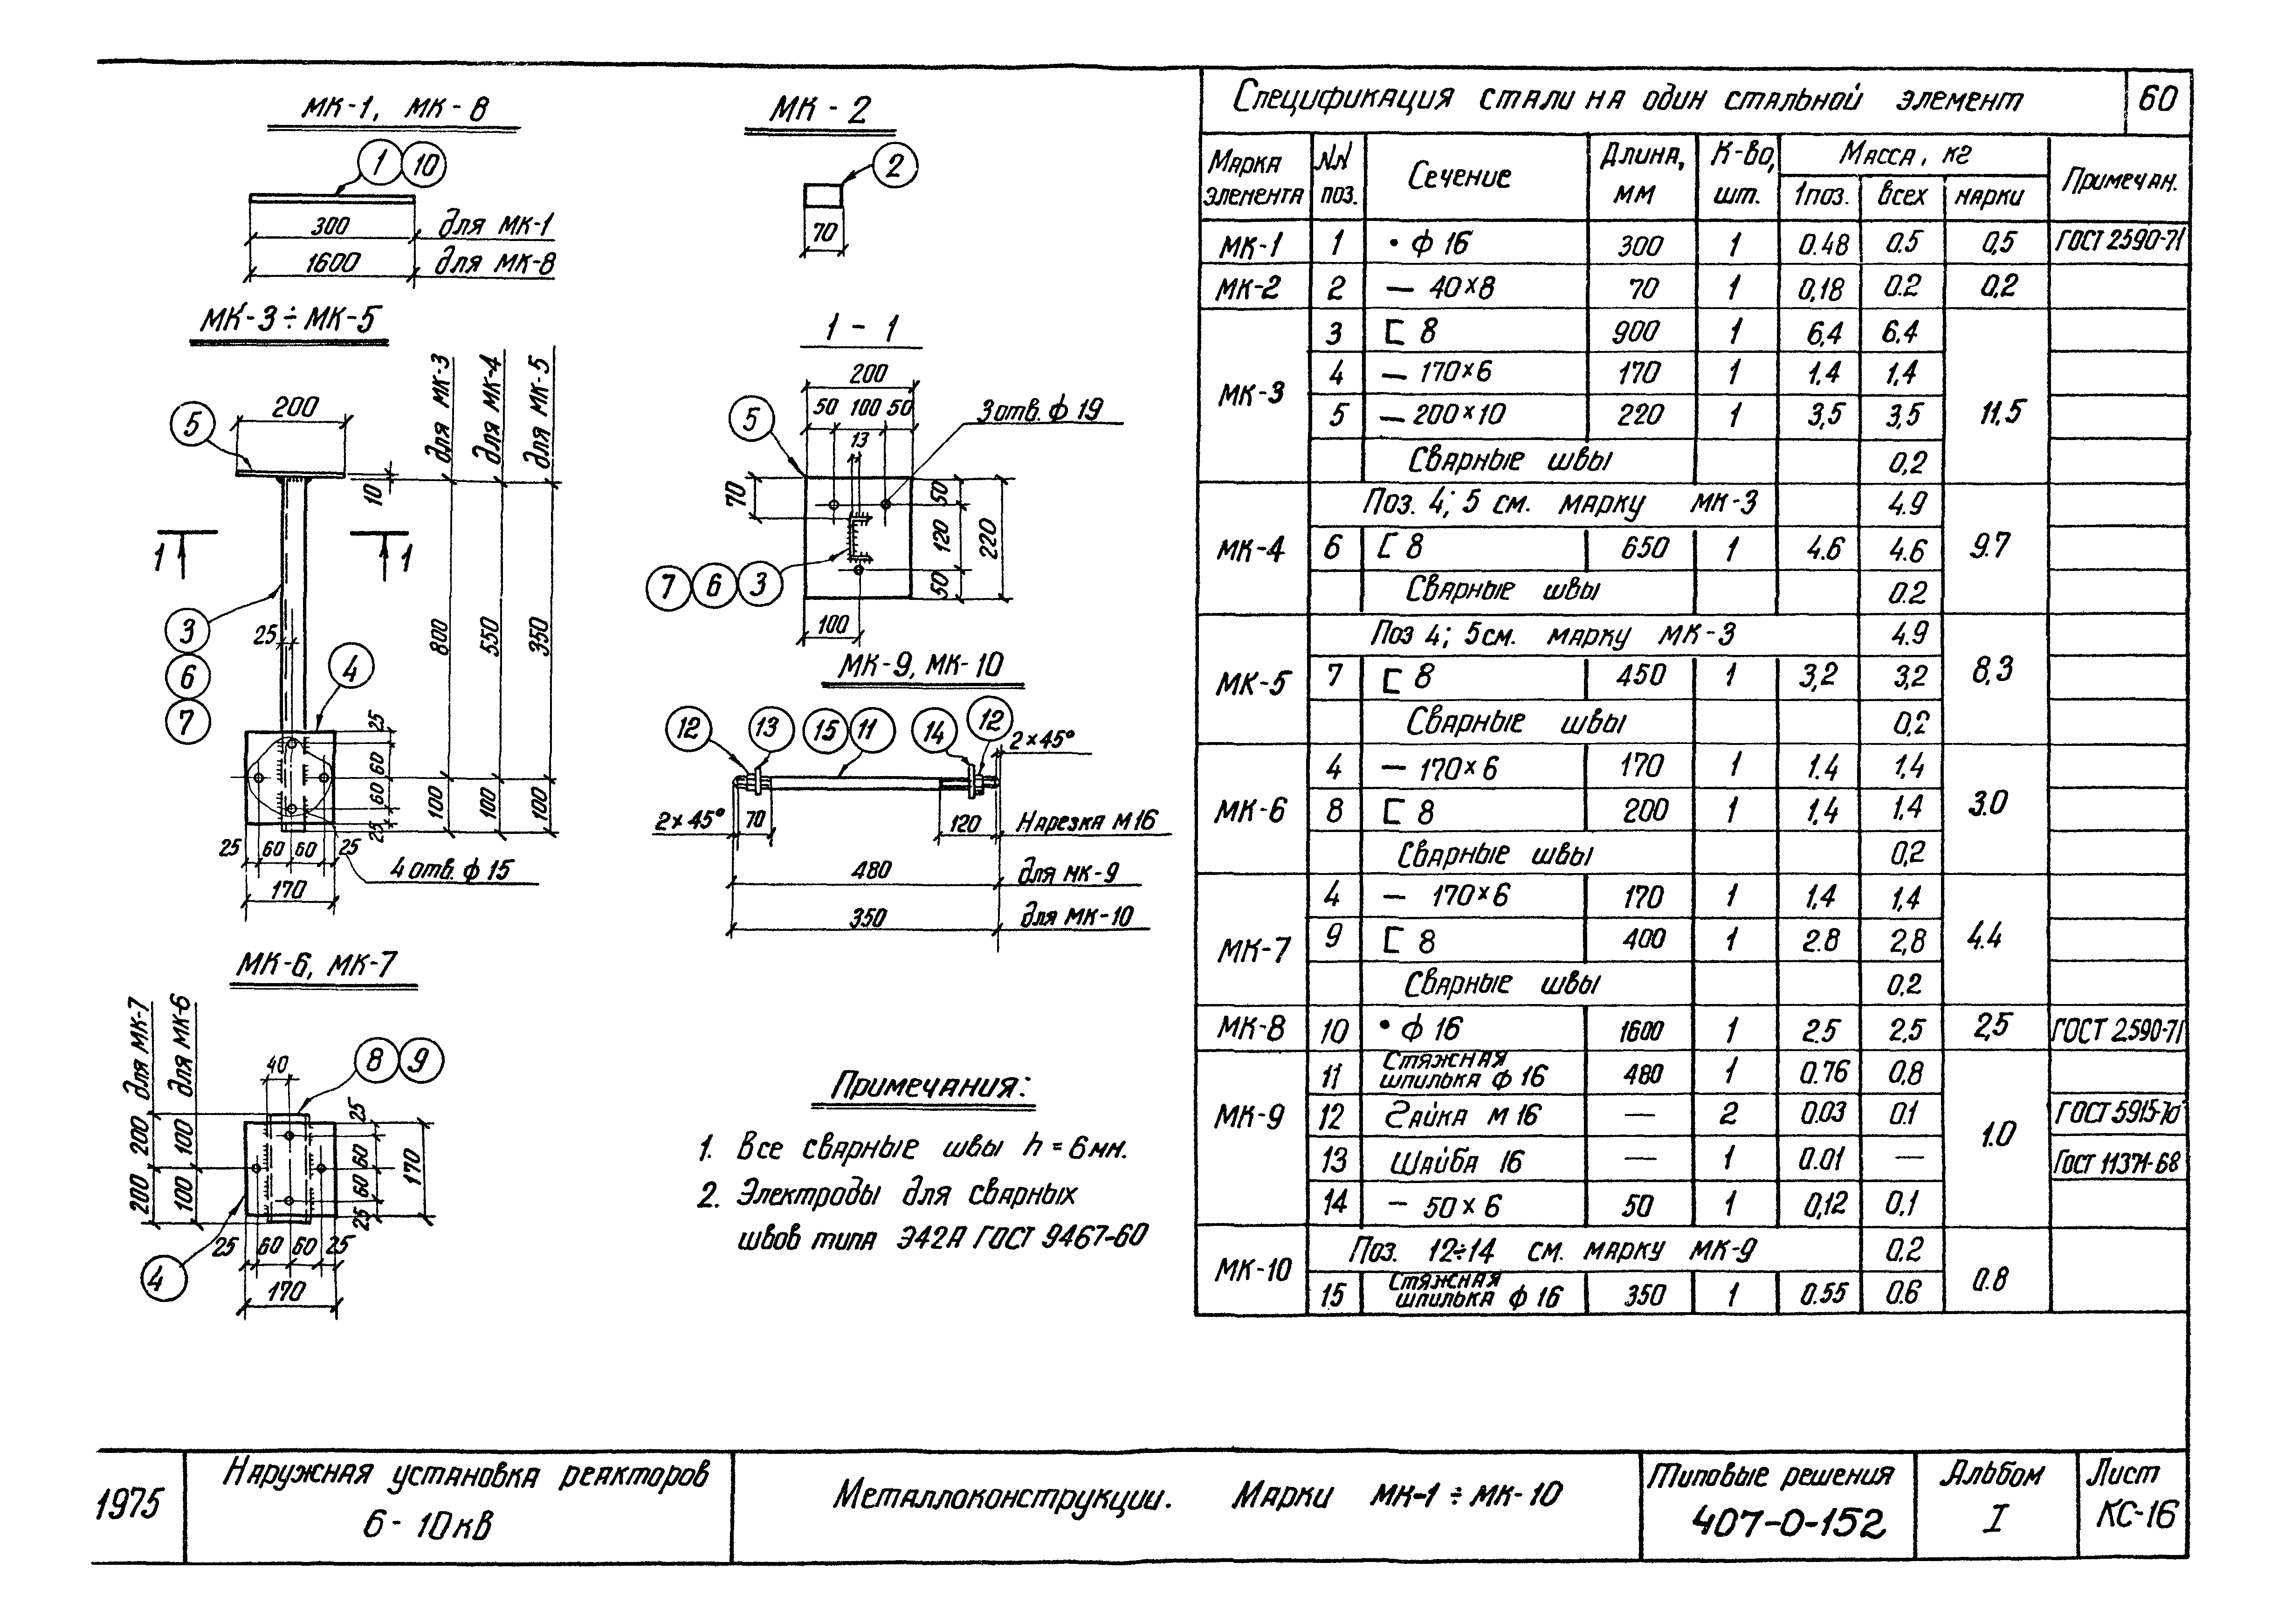 МК-1, МК-8
1 10
300 для МК-1
1600 для МК-8
МК-2
2
70
МК-3÷МК-5
200
5
10
для МК-3
для МК-4
для МК-5
1 1
3
6
7
25
4
800
550
350
100
100
100
25
60
60
25
25 60 60 25
170
4 отв. ф 15
1 - 1
200
50 100 50
13
5
3 отв. ф 19
70
50
120
50
220
7 6 3
100
МК-9, МК-10
12 13 15 11 14 12
2×45°
2×45° 70 120 Нарезка М16
480 для МК-9
350 для МК-10
МК-6, МК-7
для МК-7
для МК-6
200
200
100
100
40
8 9
25
60
60
25
170
25 60 60 25
4
170
Примечания:
1. Все сварные швы h = 6мм.
2. Электроды для сварных
швов типа Э42А ГОСТ 9467-60
Спецификация стали на один стальной элемент 60
Марка элемента NN поз. Сечение Длина, мм К-во, шт. Масса, кг Примечан.
1поз. всех марки
МК-1 1 • ф 16 300 1 0.48 0.5 0,5 ГОСТ 2590-71
МК-2 2 — 40×8 70 1 0,18 0.2 0,2
МК-3 3 [ 8 900 1 6,4 6.4 11,5
4 — 170×6 170 1 1.4 1,4
5 — 200×10 220 1 3,5 3,5
Сварные швы 0,2
МК-4 Поз. 4; 5 см. марку МК-3 4.9 9.7
6 [ 8 650 1 4.6 4.6
Сварные швы 0.2
МК-5 Поз 4; 5см. марку МК-3 4.9 8,3
7 [ 8 450 1 3,2 3,2
Сварные швы 0,2
МК-6 4 — 170×6 170 1 1.4 1,4 3.0
8 [ 8 200 1 1,4 1,4
Сварные швы 0,2
МК-7 4 — 170×6 170 1 1,4 1,4 4.4
9 [ 8 400 1 2.8 2,8
Сварные швы 0.2
МК-8 10 • ф 16 1600 1 2.5 2,5 2,5 ГОСТ 2590-71
МК-9 11 Стяжная шпилька ф 16 480 1 0.76 0,8 1.0
12 Гайка М 16 — 2 0.03 0.1 ГОСТ 5915-70
13 Шайба 16 — 1 0.01 — ГОСТ 11371-68
14 — 50×6 50 1 0,12 0.1
МК-10 Поз. 12÷14 см. марку МК-9 0.2 0.8
15 Стяжная шпилька ф 16 350 1 0.55 0.6
1975
Наружная установка реакторов
6-10кВ
Металлоконструкции. Марки МК-1÷МК-10
Типовые решения
407-0-152
Альбом
I
Лист
КС-16